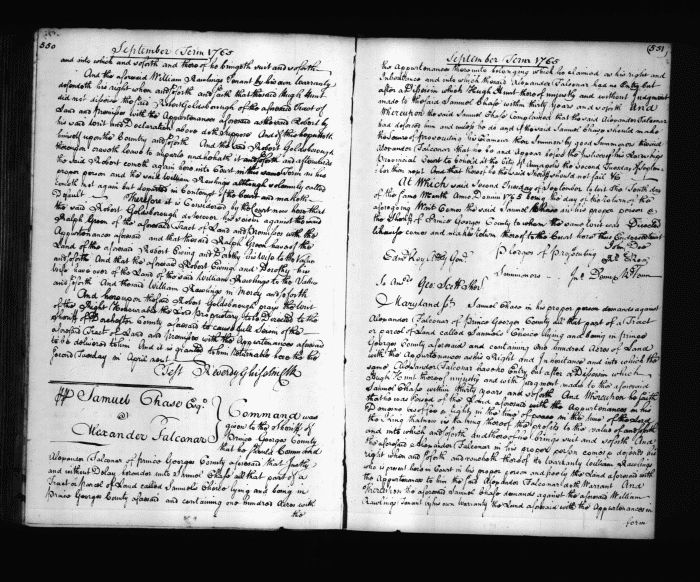 550
September Term 1765
and into which and soforth and thereof he bringeth suit and soforth
And the aforesaid William Rawlings Tenant by his own Warranty
defendeth his right when and soforth and saith that the said Hugh Hunt
did not disseise the said Robert Goldsborough of the aforesaid Tract of
Land and Premises with the Appurtenances aforesaid as the said Robert by
his said Writ and Declaration above doth suppose And of this he putteth
himself upon the Country and soforth And the said Robert Goldsborough
thereupon craveth leave to imparle and he hath it and soforth and afterwards
the said Robert cometh again here into Court in this same Term in his
proper person and the said William Rawlings although solemnly called
cometh not again but departed in Contempt of the Court and maketh
Default Therefore it is Considered by the Court now here that
the said Robert Goldsborough do recover his seisin against the said
Ralph Green of the aforesaid Tract of Land and Premises with the
Appurtenances aforesaid and that the said Ralph Green have of the
Land of the aforesaid Robert Ewing and Dorothy his Wife to the Value
and soforth And that the aforesaid Robert Ewing and Dorothy his
Wife have over of the Land of the said William Rawlings to the Value
and soforth And the said William Rawlings in Mercy and soforth
And hereupon the said Robert Goldsborough prays the Writ
of the Right Honourable the Lord Proprietary to be Directed to the
Sheriff of Dorchester County aforesaid to cause full Seisin of the
aforesaid Tract of Land and Premises with the Appurtenances aforesaid
to be delivered to him And it is granted to him Returnable here the
second Tuesday in April next
Test Reverdy Ghiselin Clk
Samuel Chase Esqr.
vs
Alexander Falconar
Command was
given to the Sheriff of
Prince Georges County
that he should Command
Alexander Falconar of Prince Georges County aforesaid that Justly
and without Delay he render unto Samuel Chase all that part of a
Tract or parcel of Land called Samuels Choice lying and being in
Prince Georges County aforesaid and containing one hundred Acres with
the
551
September Term 1765
the Appurtenances thereunto belonging which he claimed as his right and
Inheritance and into which the said Alexander Falconar had no Entry but
after a Disseisin which Hugh Hunt thereof unjustly and without Judgment
made to the said Samuel Chase within thirty Years and soforth And
Whereupon the said Samuel Chase Complained that the said Alexander Falconar
had deforced him and unless he do and if the said Samuel Chase should make
the Sheriff of Prince Georges County
the second Tuesday of
At Which said Second Tuesday of September to wit the Tenth day
of the same Month Anno Domini 1765 being the day of the return of the
aforegoing Writ Comes the said Samuel Chase in his proper person &
the Sheriff of Prince Georges County to whom the same Writ was Directed
likewise comes and makes return thereof to the Court here thus Endorsed to wit
Pledges of Prosecuting
John Doe
Rd. Roe
Summoners
Geo: Scott Shff
Maryland ss. Samuel Chase in his proper person demands against
Alexander Falconar of Prince Georges County all that part of a Tract
or parcel of Land called Samuels Choice lying and being in Prince
Georges County aforesaid and containing one hundred Acres of Land
with the Appurtenances as his Right and Inheritance and into which the
same Alexander Falconar has no Entry but after a Disseisin which
Hugh Hunt thereof unjustly and without Judgment made to the aforesaid
Samuel Chase within thirty Years and soforth And Whereupon he saith
that he was Seised of the Land aforesaid with the Appurtenances in his
Demesne as of fee & right in the time of peace in the time of
the King that now is taking thereof the profits to the value of and soforth
and into which and soforth and thereof he brings suit and soforth And
the aforesaid Alexander Falconar in his proper person comes & defends his
right when and soforth and voucheth thereof to Warranty William Rawlings
who is present here in Court in his proper person and freely the Land aforesaid with
the Appurtenances to him the said Alexander Falconar doth Warrant And
thereupon the aforesaid Samuel Chase demands against the aforesaid William
Rawlings Tenant by his own Warranty the Land aforesaid with the Appurtenances in
form